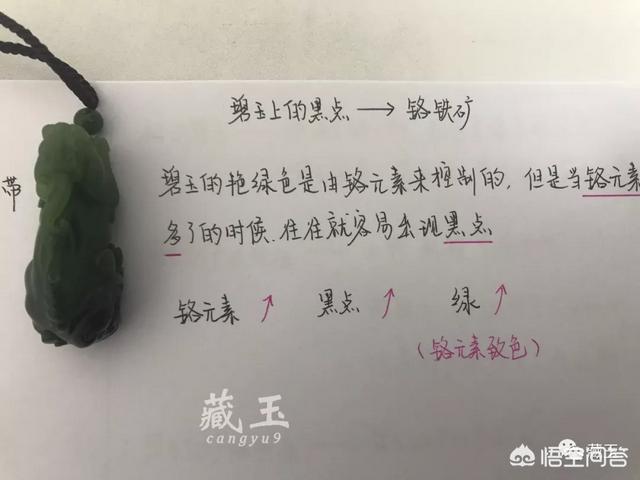 碧玉上的黑点 → 铬铁矿
带
碧玉的艳绿色是由铬元素来控制的，但是当铬元素
多了的时候，往往就容易出现黑点
铬元素 ↑ 黑点 ↑ 绿 ↑
(铬元素致色)
藏玉
cangyu9
藏玉
悟空问答